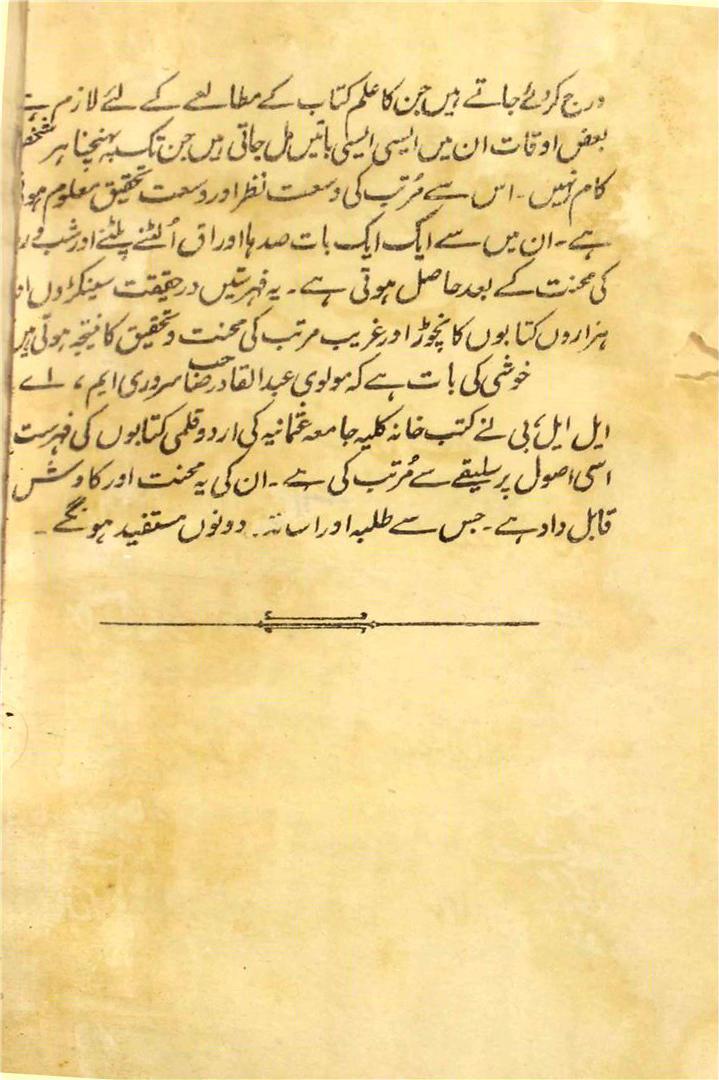 درج کر دئے جاتے ہیں جن کا علم کتاب کے مطالعے کے لئے لازم ہے
بعض اوقات ان میں ایسی ایسی باتیں مل جاتی ہیں جن تک پہنچنا ہر شخص
کام نہیں۔ اس سے مُرتب کی وسعت نظر اور وسعت تحقیق معلوم ہوتی
ہے۔ ان میں سے ایک ایک بات صدہا اوراق اُلٹنے پلٹنے اور شب و
کی محنت کے بعد حاصل ہوتی ہے۔ یہ فہرستیں درحقیقت سینکڑوں
ہزاروں کتابوں کا نچوڑ اور غریب مرتب کی محنت و تحقیق کا نتیجہ ہوتی ہیں
خوشی کی بات ہے کہ مولوی عبدالقادر صاحب سروری ایم، اے
ایل ایل، بی نے کتب خانہ کلیہ جامعہ عثمانیہ کی اردو قلمی کتابوں کی فہرست
اسی اصول پر سلیقے سے مُرتب کی ہے۔ ان کی یہ محنت اور کاوش
قابل داد ہے۔ جس سے طلبہ اور اساتذہ دونوں مستفید ہونگے۔